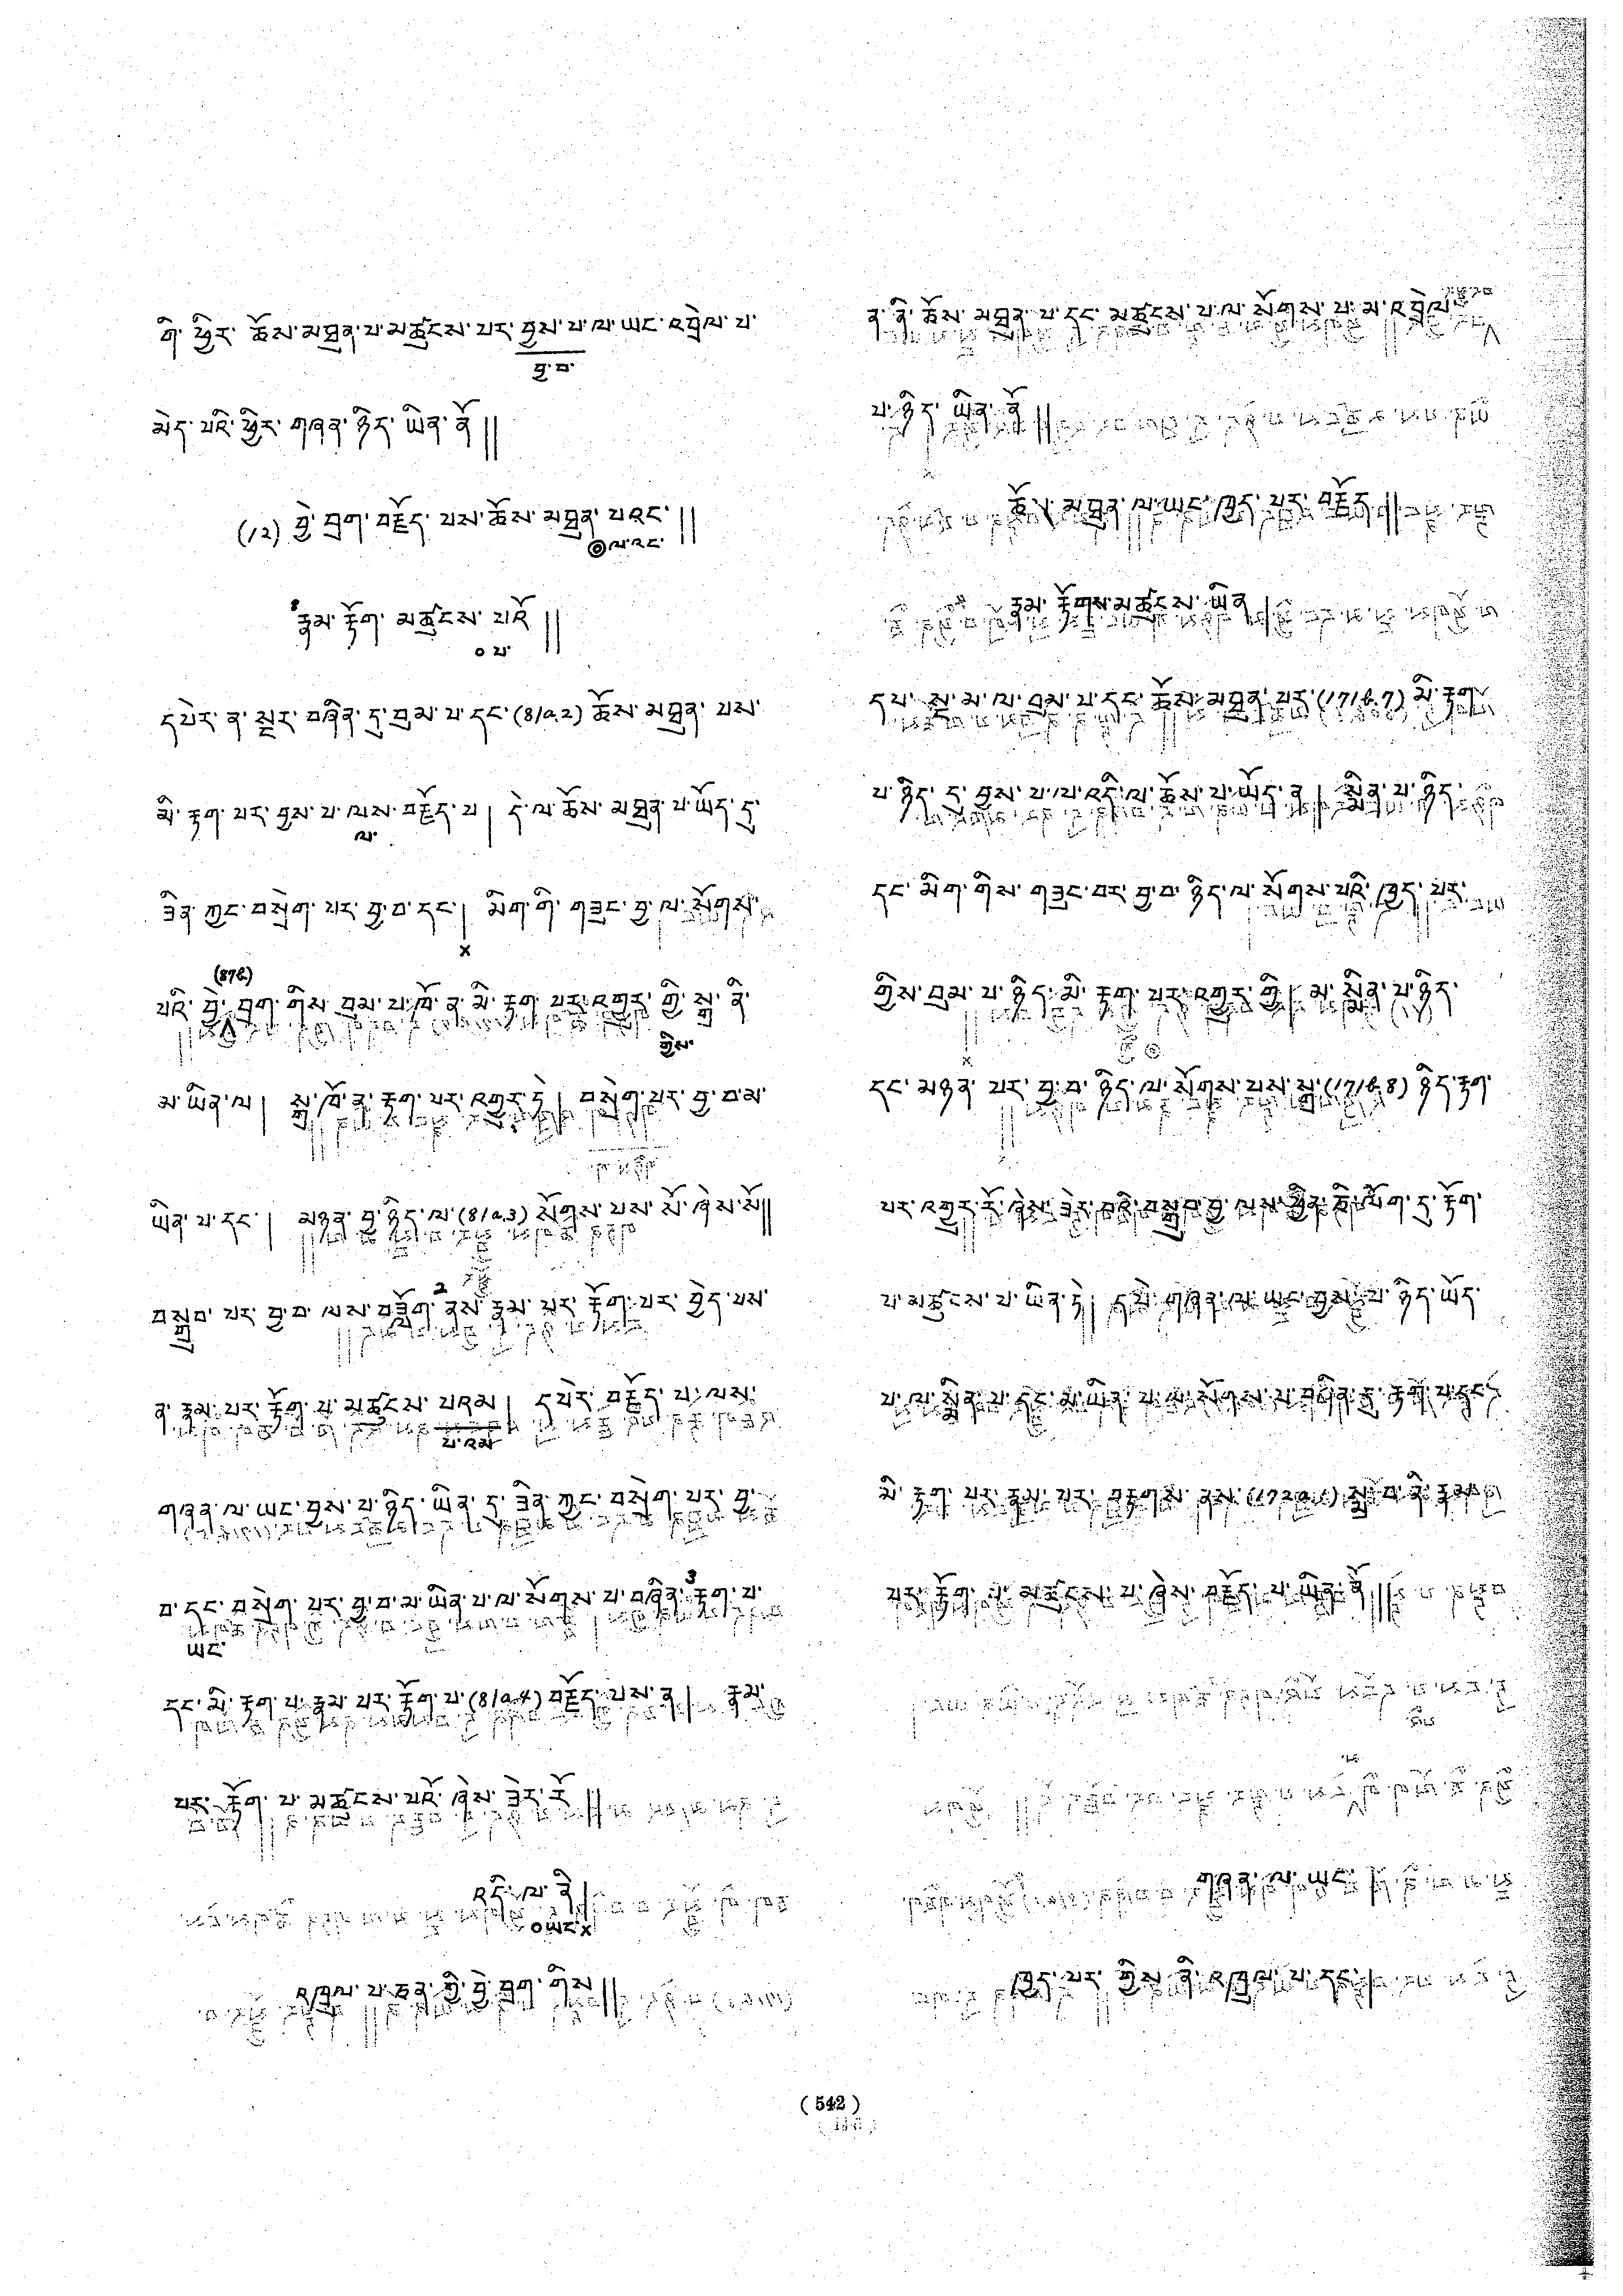 གི་ ཕྱིར་ ཆོས་མཐུན་པ་མཚུངས་པར་བྱས་པ་ལ་ཡང་འབྲེལ་པ་
བྱ་བ་
མེད་པའི་ཕྱིར་གཞན་ཉིད་ཡིན་ནོ༎
(12) བྱེ་བྲག་བརྗོད་པས་ཆོས་མཐུན་པའང་༎
◎ལ་འང་
རྣམ་རྟོག་མཚུངས་པའོ༎
༠པ་
དཔེར་ན་སྔར་བཞིན་དུ་བུམ་པ་དང་(81a.2) ཆོས་མཐུན་པས་
མི་རྟག་པར་བྱས་པ་ལས་བརྗོད་པ། དེ་ལ་ཆོས་མཐུན་པ་ཡོད་དུ་
ལ་
ཟིན་ཀྱང་བསྲེག་པར་བྱ་བ་དང་། མིག་གི་གཟུང་བྱ་ལ་སོགས་
x
(876)
པའི་བྱེ་བྲག་གིས་བུམ་པ་ཁོ་ན་མི་རྟག་པར་འགྱུར་གྱི་སྒྲ་ནི་
གྱིས་
མ་ཡིན་ལ། སྒྲ་ཁོ་ན་རྟག་པར་འགྱུར་ཏེ། བསྲེག་པར་བྱ་བ་མ་
ཡིན་པ་དང་། མཉན་བྱ་ཉིད་ལ་(81a.3) སོགས་པས་སོ་ཞེས་སོ༎
བསྒྲུབ་པར་བྱ་བ་ལས་བཟློག་2ནས་རྣམ་པར་རྟོག་པར་བྱེད་པས་
ན་རྣམ་པར་རྟོག་པ་མཚུངས་པའམ། དཔེར་བརྗོད་པ་ལས་
པ་འམ་
གཞན་ལ་ཡང་བྱས་པ་ཉིད་ཡིན་དུ་ཟིན་ཀྱང་བསྲེག་པར་བྱ་
བ་དང་བསྲེག་པར་བྱ་བ་མ་ཡིན་པ་ལ་སོགས་པ་བཞིན་3རྟག་པ་
ཡང་
དང་མི་རྟག་པ་རྣམ་པར་རྟོག་པ་(81a.4) བརྗོད་པས་ན། རྣམ་
པར་རྟོག་པ་མཚུངས་པའོ་ཞེས་ཟེར་རོ༎
འདི་ལ་ནི།
༠ཡང་x
འཁྲུལ་པ་ཅན་གྱི་བྱེ་བྲག་གིས༎
ན་ནི་ཆོས་མཐུན་པ་དང་མཚུངས་པ་ལ་སོགས་པ་མ་འབྲེལ་
པ་ཉིད་ཡིན་ནོ༎
མཐུན་ལ་ཡང་ཁྱད་པར་བརྗོད༎
རྣམ་རྟོགས་མཚུངས་ཡིན།
ལ་བུམ་པ་དང་ཆོས་མཐུན་པར་(171b.7) མི་རྟག་
པ་ཉིད་དུ་བྱས་པ་ལ་འདི་ལ་ཆོས་པ་ཡོད་ན། སྨིན་པ་ཉིད་
དང་མིག་གིས་གཟུང་བར་བྱ་བ་ཉིད་ལ་སོགས་པའི་ཁྱད་པར་
གྱིས་བུམ་པ་ཉིད་མི་རྟག་པར་འགྱུར་གྱི། མ་སྨིན་པ་ཉིད་
དང་མཉན་པར་བྱ་བ་ཉིད་ལ་སོགས་པས་སྒྲ་(171b.8) ཉིད་རྟག་
པར་འགྱུར་རོ་ཞེས་ཟེར་བའི་བསྒྲུབ་བྱ་ལས་ཕྱིན་ཅི་ལོག་ཏུ་རྟོག་
པ་མཚུངས་པ་ཡིན་ཏེ། དཔེ་གཞན་ལ་ཡང་བྱས་པ་ཉིད་ཡོད་
པ་ལ་སྨིན་པ་དང་མ་ཡིན་པ་ལ་སོགས་པ་བཞིན་དུ་རྟག་པ་དང་
མི་རྟག་པར་རྣམ་པར་བརྟགས་ནས་(172a.1) སྨྲ་བ་ནི་རྣམ་
པར་རྟོག་པ་མཚུངས་པ་ཞེས་བརྗོད་པ་ཡིན་ནོ༎
གཞན་ལ་ཡང་
ཁྱད་པར་གྱིས་ནི་འཁྲུལ་པ་དང་།
( 542 )